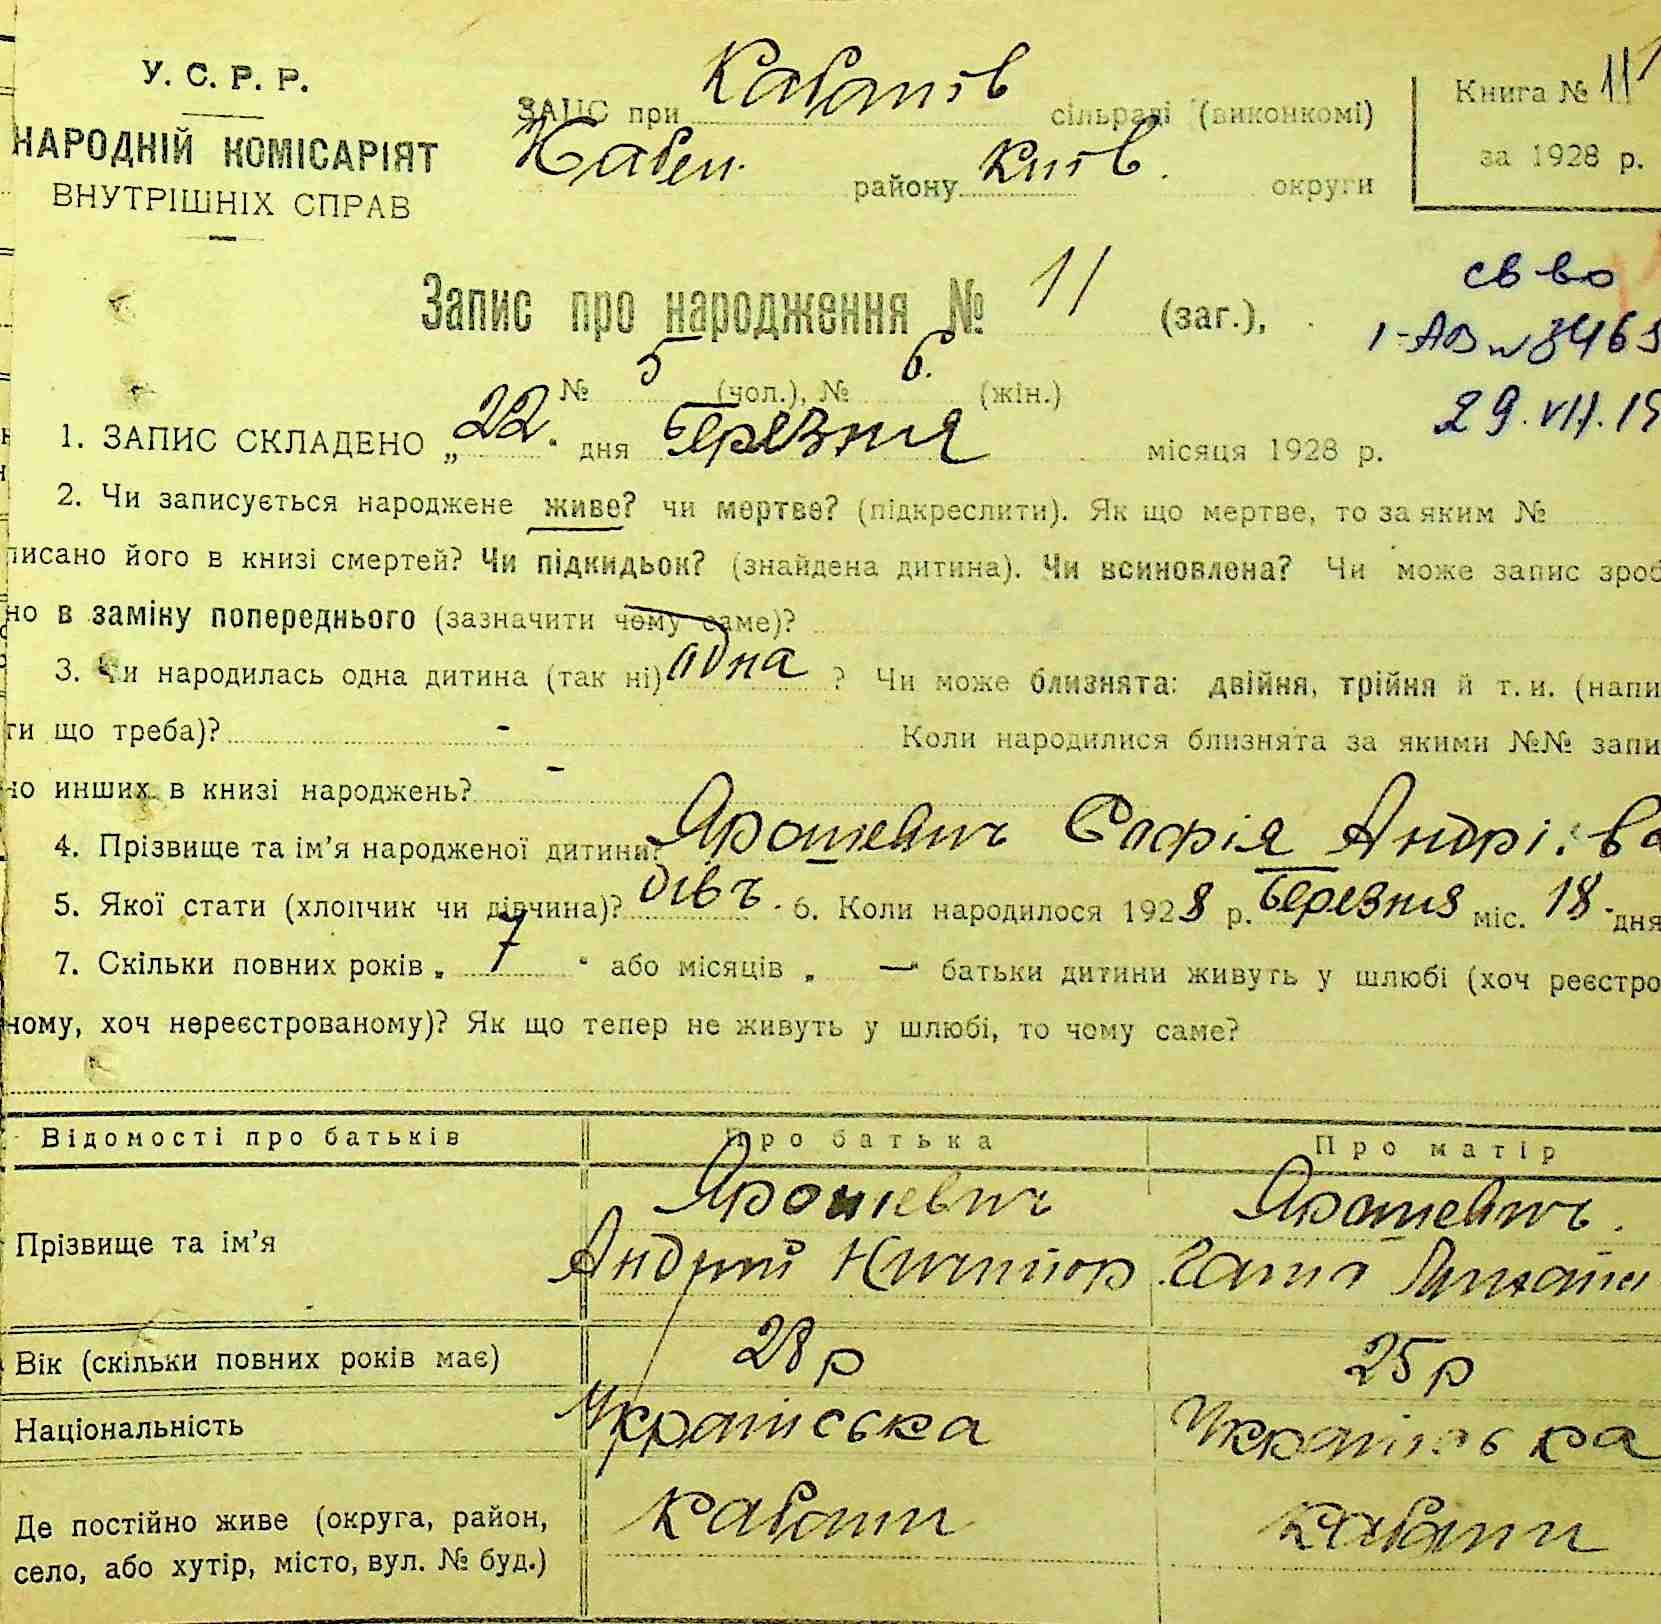 У. С. Р. Р.
НАРОДНІЙ КОМІСАРІЯТ
ВНУТРІШНІХ СПРАВ
ЗАПС при сільраді (виконкомі)
району Київ. округи
Книга № 11
за 1928 р.
Запис про народження № 11 (заг.),
№ 5 (чол.), № 6. (жін.)
св во
29. VII. 19
1. ЗАПИС СКЛАДЕНО „ 22 " дня Березня місяця 1928 р.
2. Чи записується народжене живе? чи мертве? (підкреслити). Як що мертве, то за яким №
писано його в книзі смертей? Чи підкидьок? (знайдена дитина). Чи всиновлена? Чи може запис зроб
но в заміну попереднього (зазначити чому саме)?
3. Чи народилась одна дитина (так ні) одна ? Чи може близнята: двійня, трійня й т. и. (напи
ти що треба)? - Коли народилися близнята за якими №№ запи
но инших в книзі народжень? -
4. Прізвище та ім'я народженої дитини? Ярошевич Софія Андрі.ва
5. Якої стати (хлопчик чи дівчина)? дівч. 6. Коли народилося 1928 р. Березня міс. 18 дня
7. Скільки повних років „ 7 " або місяців „ — " батьки дитини живуть у шлюбі (хоч реєстро
ному, хоч нереєстрованому)? Як що тепер не живуть у шлюбі, то чому саме?
Відомості про батьків Про батька Про матір
Прізвище та ім'я Ярошевич Ярошевич.
Андрій
Вік (скільки повних років має) 28 р 25 р
Національність Українська Українська
Де постійно живе (округа, район,
село, або хутір, місто, вул. № буд.)